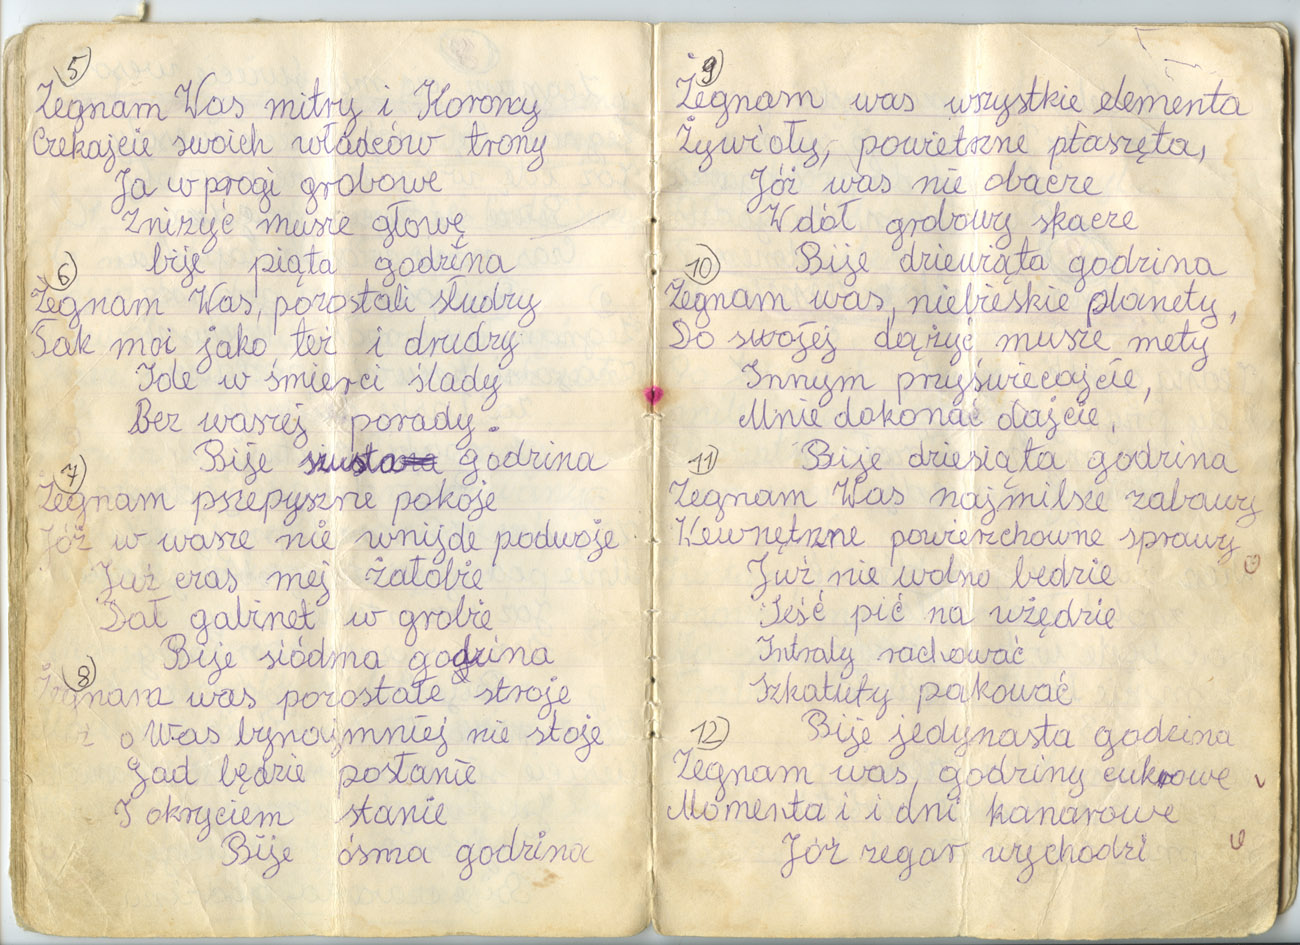 5
Żegnam Was mitry i Korony
Czekajcie swoich władców trony
Ja w progi grobowe
Zniżyć musze głowę
bije piąta godzina
6
Żegnam Was, pozostali słudzy
Tak moi jako też i drudzy
Ide w śmierci ślady
Bez waszej porady.
Bije szusta godzina
7
Żegnam pszepyszne pokoje
Jóż w wasze nie wnijde podwoje
Już czas mej żałobie
Dał gabinet w grobie
Bije siódma godzina
8
Żegnam was pozostałe stroje
o Was bynajmniej nie stoje
Gad będzie posłanie
I okryciem stanie
Bije ósma godzina
9
Żegnam was wszystkie elementa
Żywioły, powietrzne ptaszęta,
Jóż was nie obacze
W dół grobowy skacze
Bije dziewiąta godzina
10
Żegnam was, niebieskie planety,
Do swojej dążyć musze mety
Innym przyświecajcie,
Mnie dokonać dajcie,
Bije dziesiąta godzina
11
Żegnam Was najmilsze zabawy
Wewnętrzne powierzchowne sprawy
Już nie wolno bedzie
Jeść pić na użędzie
Intraty rachować
Szkatuły pakować
Bije jedynasta godzina
12
Żegnam was, godziny cukrowe
Momenta i i dni kanarowe
Jóż zegar wychodzi